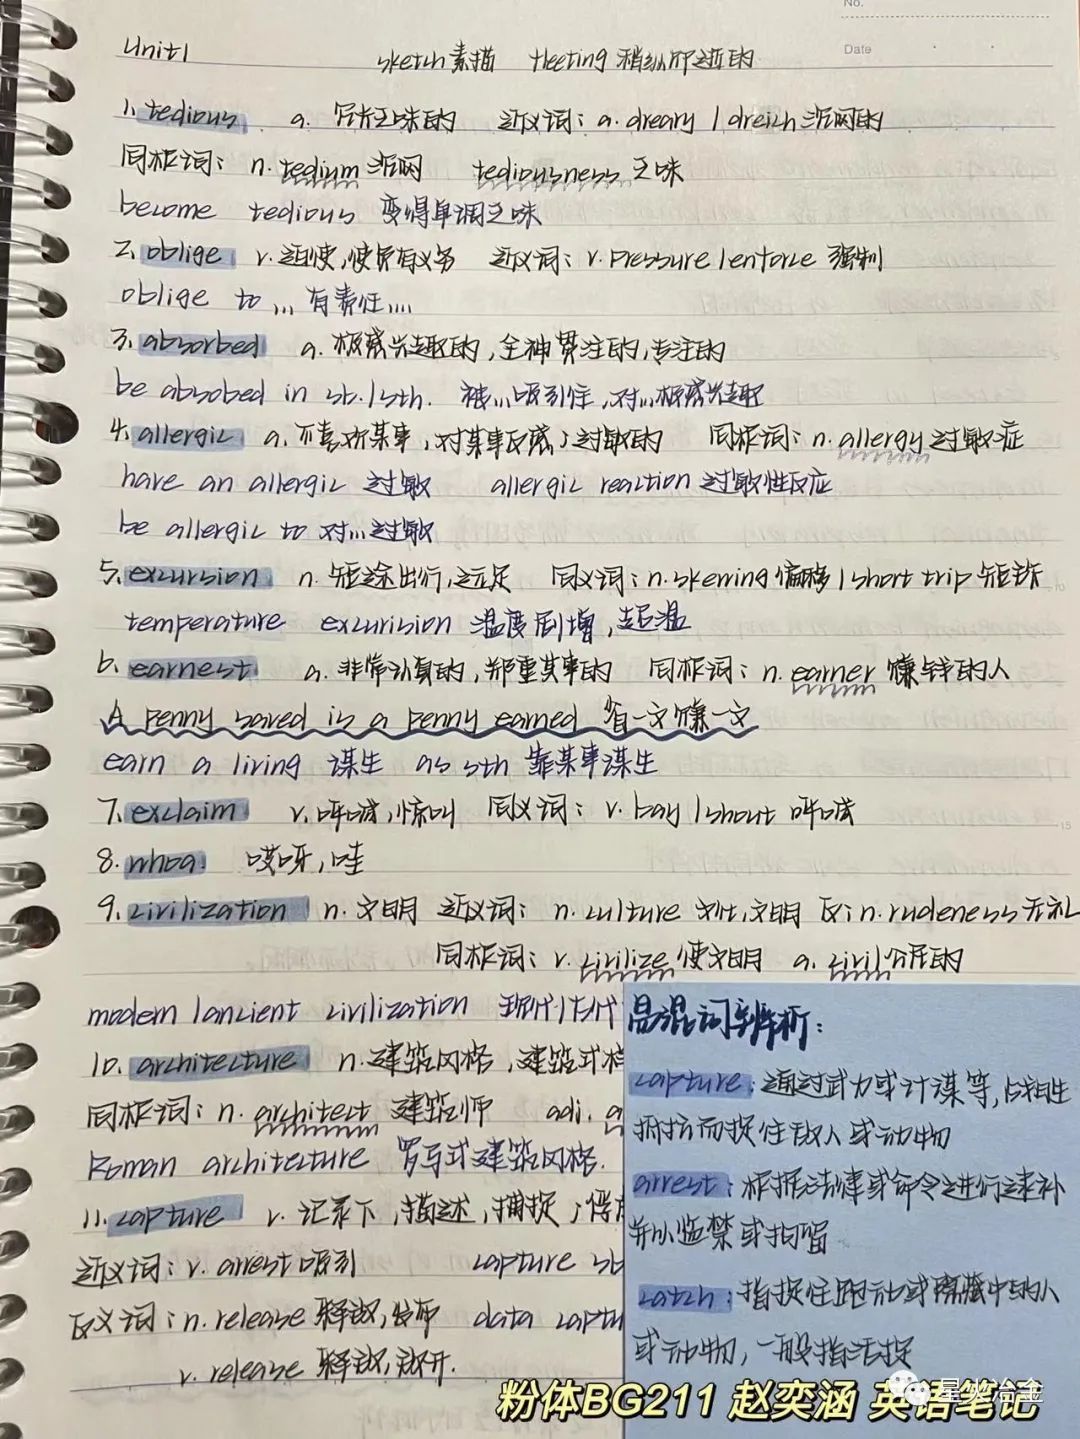 No.
Date
Unit1 sketch素描 fleeting稍纵即逝的
1. tedious a. 冗长乏味的 近义词: a. dreary / dreich沉闷的
同根词: n. tedium沉闷 tediousness乏味
become tedious 变得单调乏味
2. oblige v. 迫使,使负有义务 近义词: v. pressure / enforce 强制
oblige to ... 有责任....
3. absorbed a. 极感兴趣的,全神贯注的,专注的
be absobed in sb./sth. 被...吸引住,对...极感兴趣
4. allergic a. 不喜欢某事,对某事反感;过敏的 同根词: n. allergy过敏症
have an allergic 过敏 allergic reaction过敏性反应
be allergic to 对...过敏
5. excursion n. 短途出行,远足 同义词: n. skewing偏移 / short trip短评
temperature excurision 温度剧增,起温
6. earnest a. 非常认真的,郑重其事的 同根词: n. earner 赚钱的人
A penny saved is a penny earned 省一文赚一文
earn a living 谋生 as sth 靠某事谋生
7. exclaim v. 呼喊,惊叫 同义词: v. bay / shout 呼喊
8. whoa. 哎呀,哇
9. civilization n. 文明 近义词: n. culture 文化,文明 反: n. rudeness无礼
同根词: v. civilize使文明 a. civil公民的
modern / ancient civilization 现代/古代
10. architecture n. 建筑风格,建筑式样
同根词: n. architect 建筑师 adj. a
Roman architecture 罗马式建筑风格.
11. capture v. 记录下,描述,捕捉;俘
近义词: v. arrest吸引 capture sb
反义词: n. release 释放,发布 data captu
v. release 释放,放开.
易混词辨析:
capture: 通过武力或计谋等,战胜
抵抗而捉住敌人或动物
arrest: 根据法律或命令进行逮补
并以监禁或拘留
catch: 指捉住跑动或隐藏中的人
或动物,一般指活捉
星火冶金
粉体BG211 赵奕涵 英语笔记